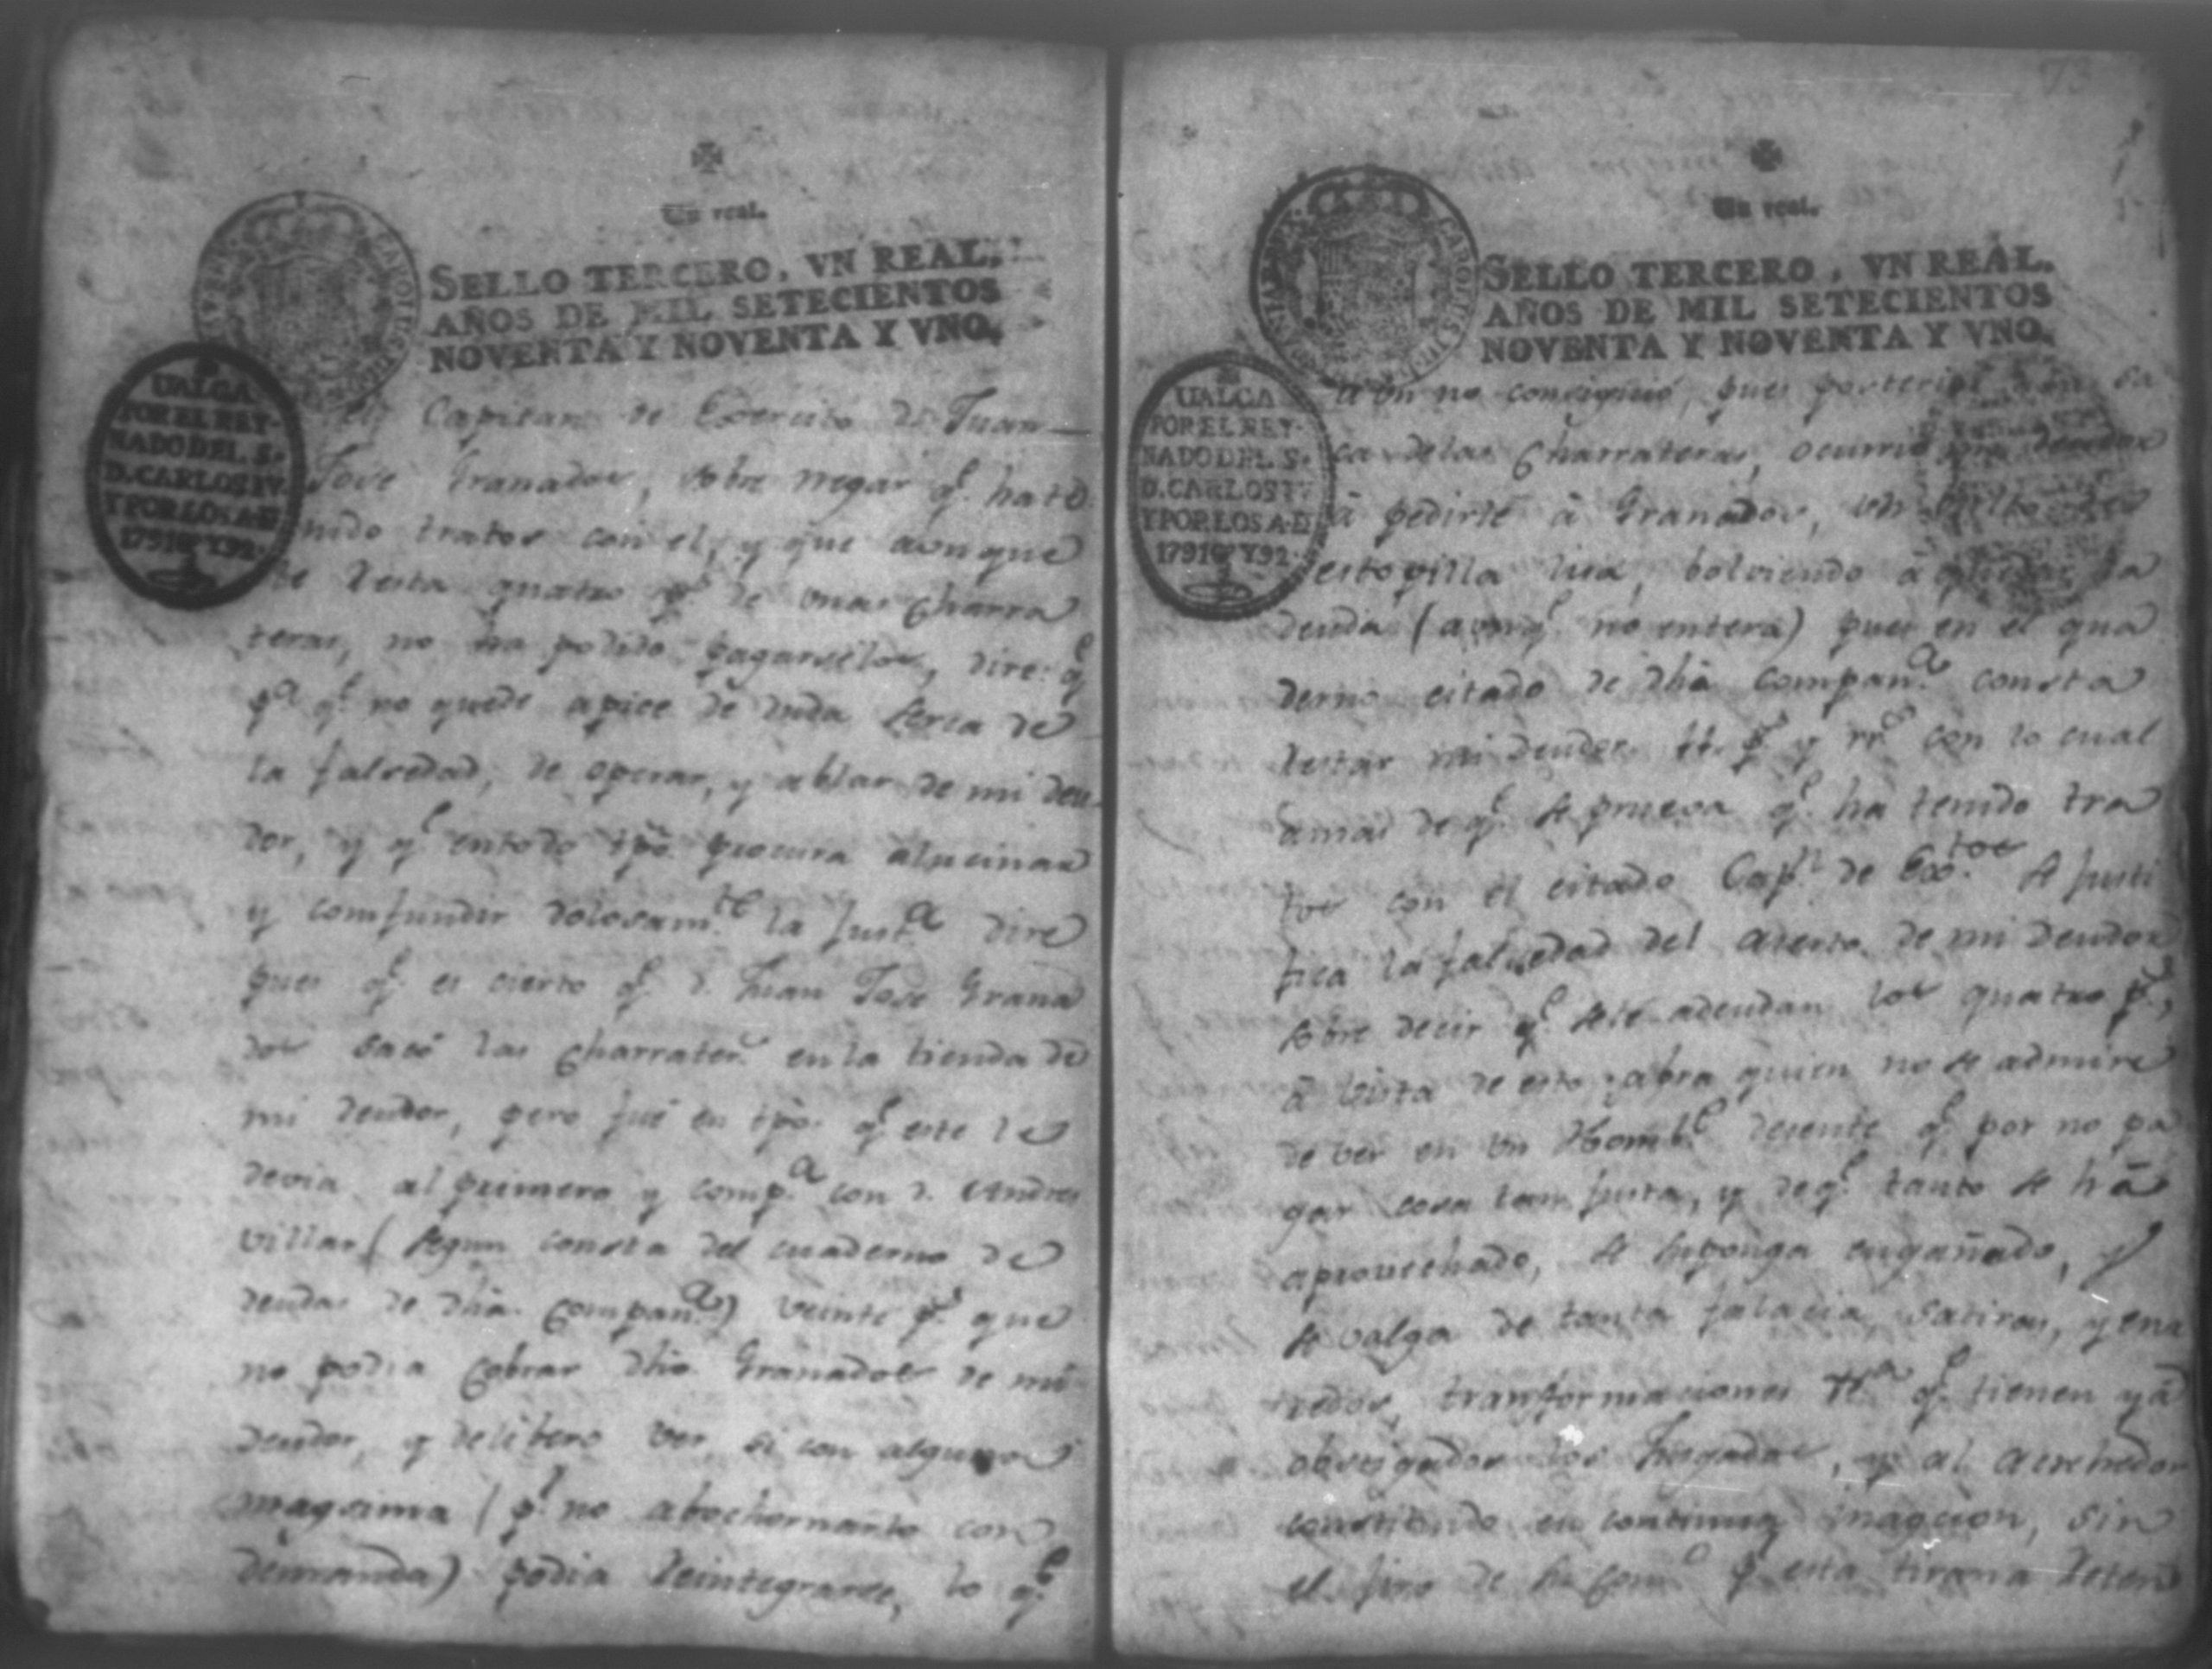 Un real.
SELLO TERCERO, VN REAL,
AÑOS DE MIL SETECIENTOS
NOVENTA Y NOVENTA Y VNO.
UALGA
POR EL REY-
NADO DEL S.
D. CARLOS IV.
Y POR LOS A. D
1791 Y 92.
el Capitan de Exercito dn. Juan
José Granados, sobre negar qe. ha te
nido tratos con el, y que aunque
le resta quatro ps. de unas charra
teras, no ha podido pagarselos, dire: qe
pa. qe. no quede apice de duda serca de
la falsedad, de operar, y ablar de mi deu
dor, y qe. en todo tpo. procura alucinar
y comfundir dolosamte. la Justa. dire
pues qe. es cierto qe. d. Juan José Grana
dos sacó las charrateras. en la tienda de
mi deudor, pero fué en tpo. qe. este le
devia al primero y compa. con d. Andres
Villar (segun consta del cuaderno de
deudas de dha. compana.) veinte ps. que
no podia cobrar dho. Granados de mi
deudor, y deliberó ver, si con alguna
magsima (qe. no abochornarlo con
demanda) podia reintegrarse, lo qe.
73
Un real.
SELLO TERCERO, VN REAL.
AÑOS DE MIL SETECIENTOS
NOVENTA Y NOVENTA Y VNO.
UALGA
POR EL REY-
NADO DEL S.
D. CARLOS IV
Y POR LOS A. D
1791 Y 92.
aun no consiguió, pues posterior á la sa
ca de las charrateras, ocurrió mi deudor
á pedirle á Granados, un
estopilla lisa, bolviendo á la
deuda (aunqe. no entera) pues en el qua
derno citado de dha. compana. consta
restar mi deudor 11. ps. y rrs. con lo cual
amas de qe. se prueva qe. ha tenido tra
tos con el citado Capn. de Exto. se justi
fica la falsedad del acerto de mi deudor
sobre decir qe. se le adeudan los quatro ps.,
á vista de esto ¿abra quien no se admire
de ver en un Hombe. desente qe. por no pa
gar cosa tan justa, y de qe. tanto se ha
aprovechado, se suponga engañado, y
se valga de tanta falacia, satiras, y ena
redos, tranformaciones qe. tienen ya
obstigados los Jusgados, y al acrehedor
constituido en continua inagcion, sin
el jiro de su Come. pr. esta tirana reten